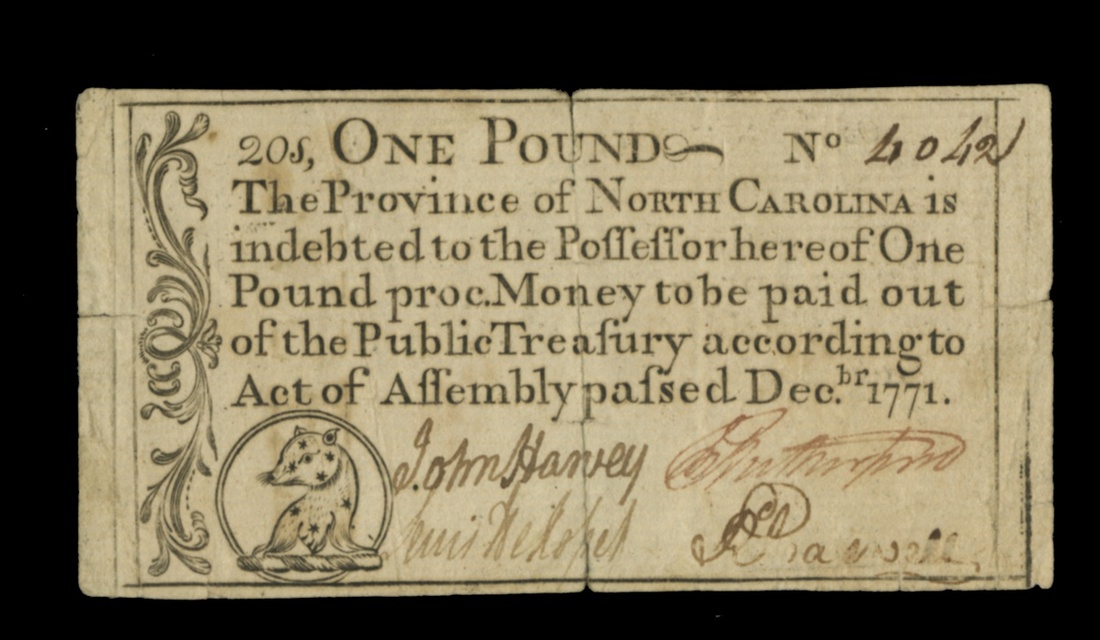 20s, ONE POUND No 4042
The Province of NORTH CAROLINA is
indebted to the Poſſeſſor hereof One
Pound proc. Money to be paid out
of the Public Treaſury according to
Act of Aſſembly paſsed Dec.br 1771.
John Harvey Rutherfurd
Lewis De Roſset